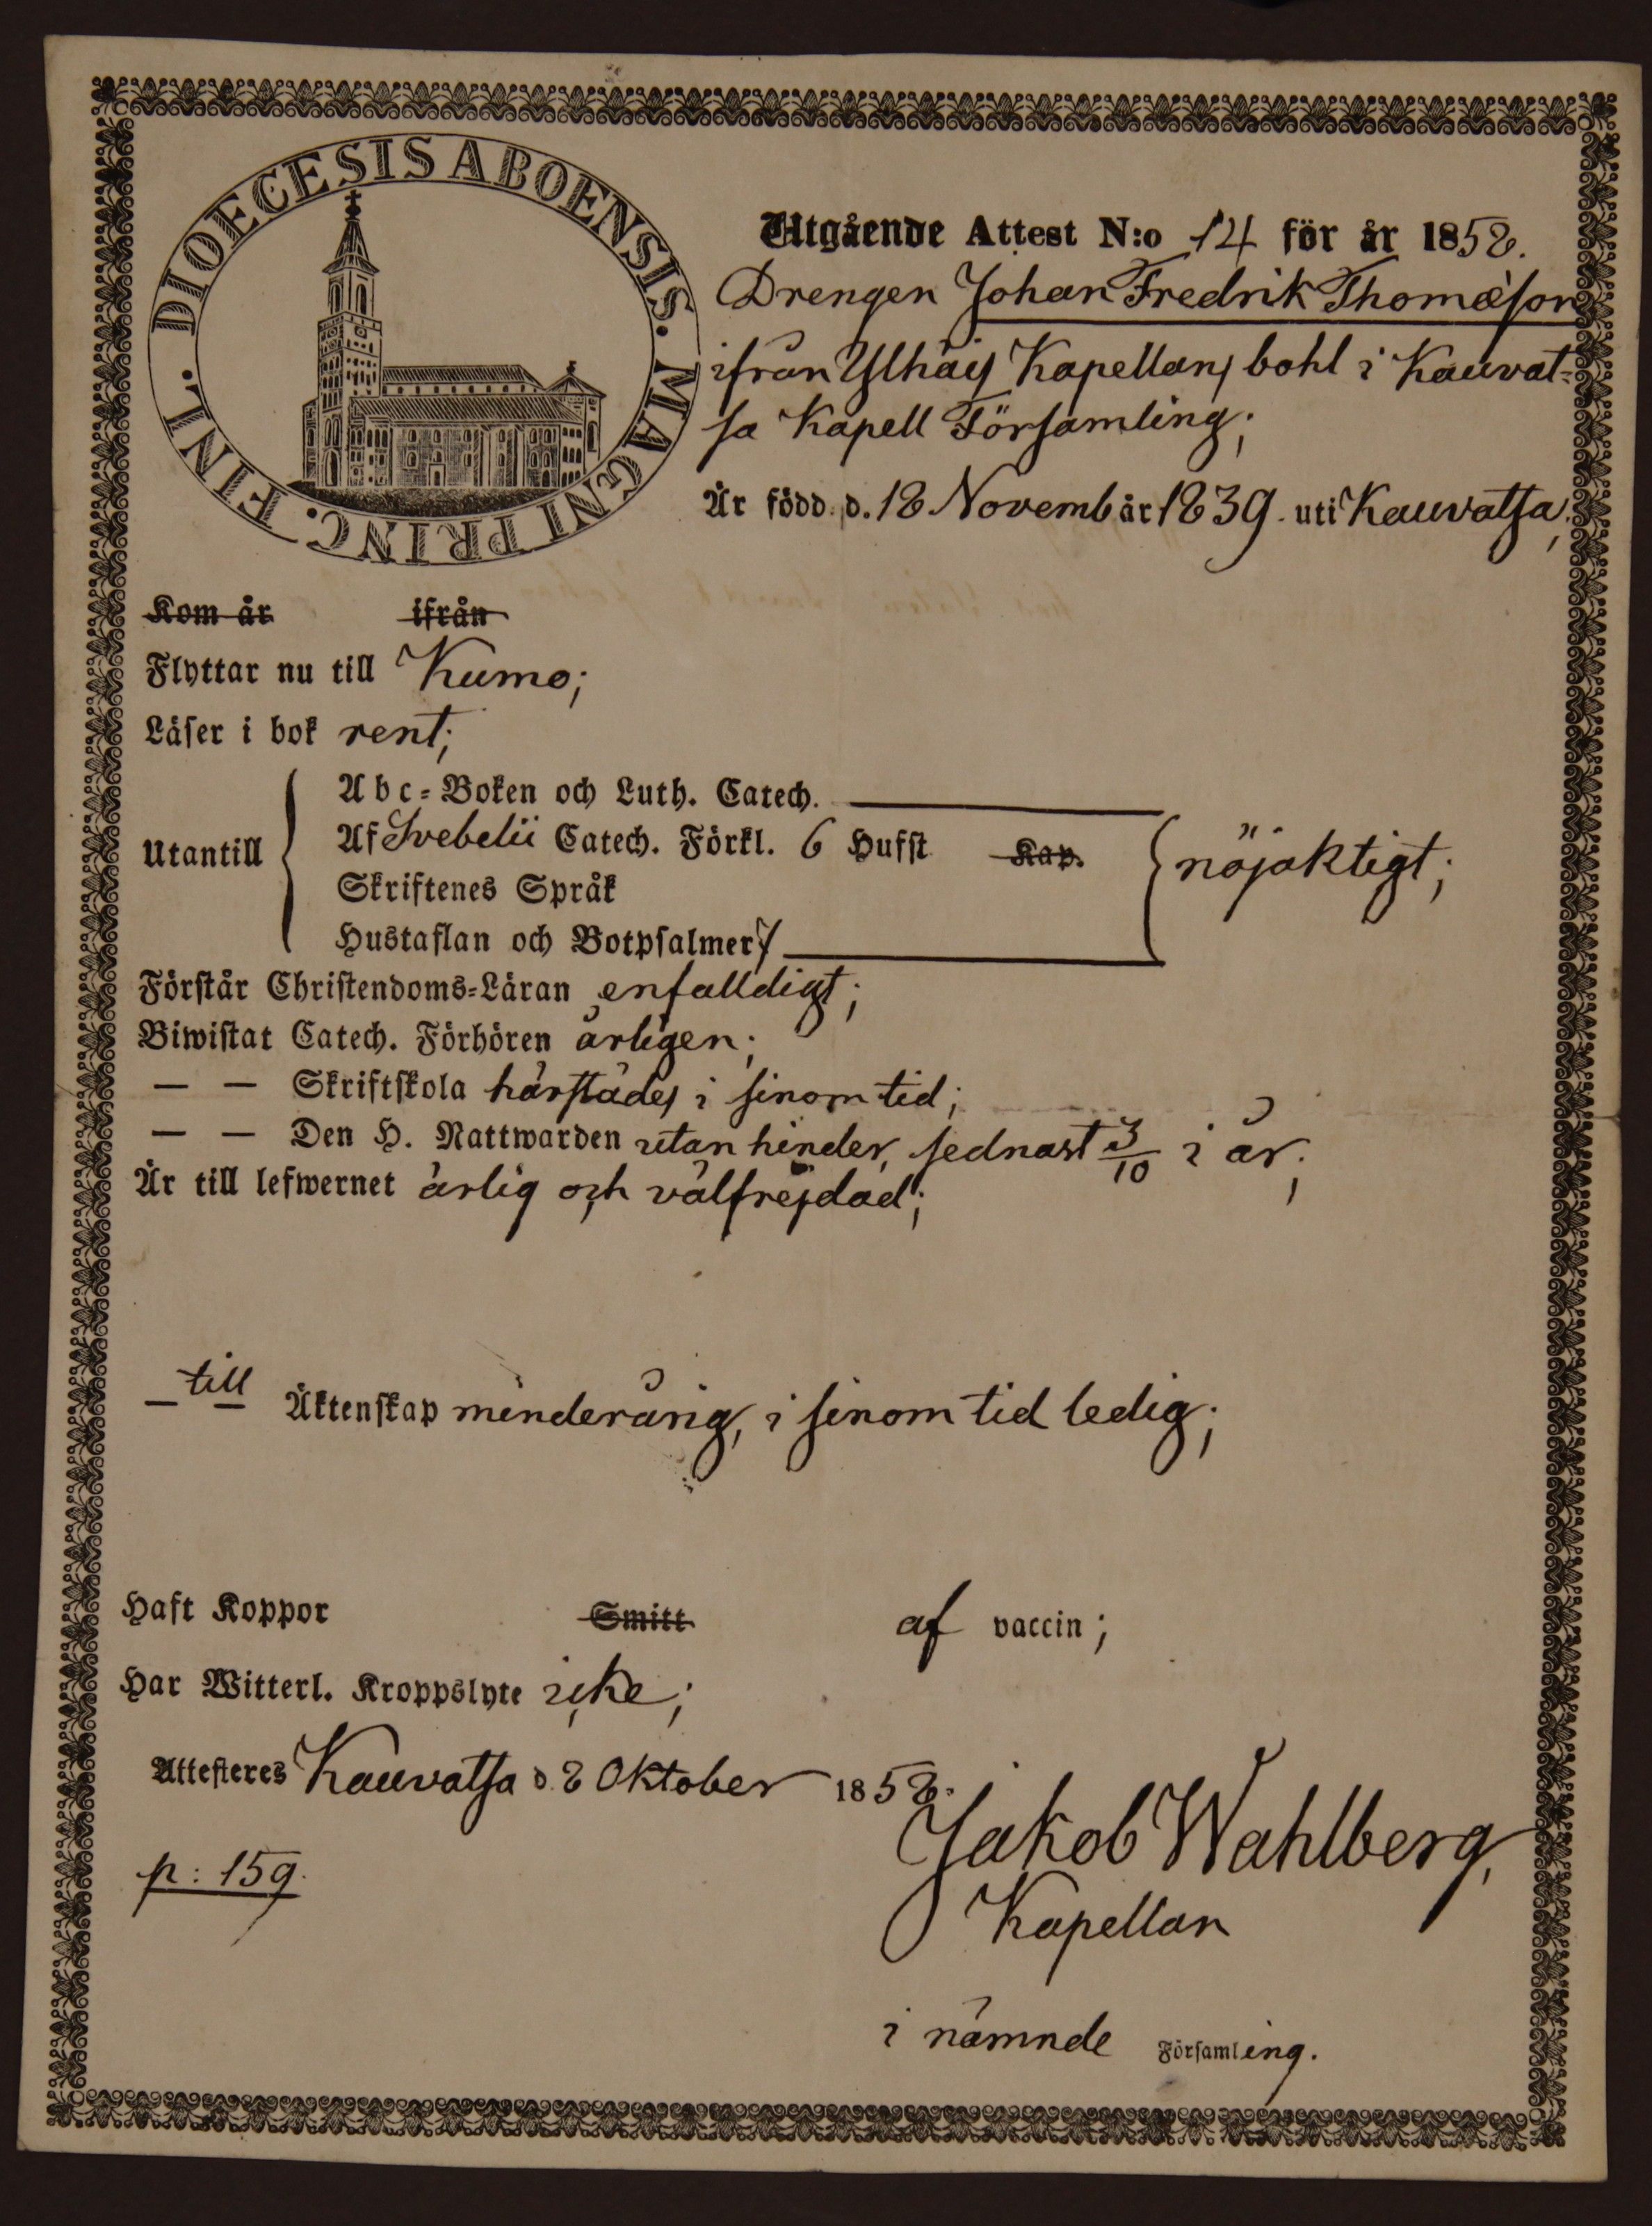 DIOECESIS ABOENSIS. MAGNI PRINC. FINL.
Utgående Attest N:o 14 för år 1858.
Drengen Johan Fredrik Thomæson
ifrån Ylhäis Kapellans bohl i Kauvat=
sa Kapell Församling;
Är född d. 18 Novemb år 1839. uti Kauvatsa;
Kom år ifrån
Flyttar nu till Kumo;
Läser i bok rent;
Utantill
Abc=Boken och Luth. Catech.
Af Svebelii Catech. Förkl. 6 Hufst Kap.
Skriftenes Språk
Hustaflan och Botpsalmer 7
nöjaktigt;
Förstår Christendoms=Läran enfalldigt;
Biwistat Catech. Förhören årligen;
— — Skriftskola härstädes i sinom tid;
— — Den H. Nattwarden utan hinder, sednast 3/10 i år;
Är till lefwernet ärlig och välfrejdad;
— till — Äktenskap minderårig, i sinom tid ledig;
Haft Koppor Smitt af vaccin;
Har Witterl. Kroppslyte icke;
Attesteres Kauvatsa d. 8 Oktober 1858.
Jakob Wahlberg,
p: 159.
Kapellan
i nämnde Församling.